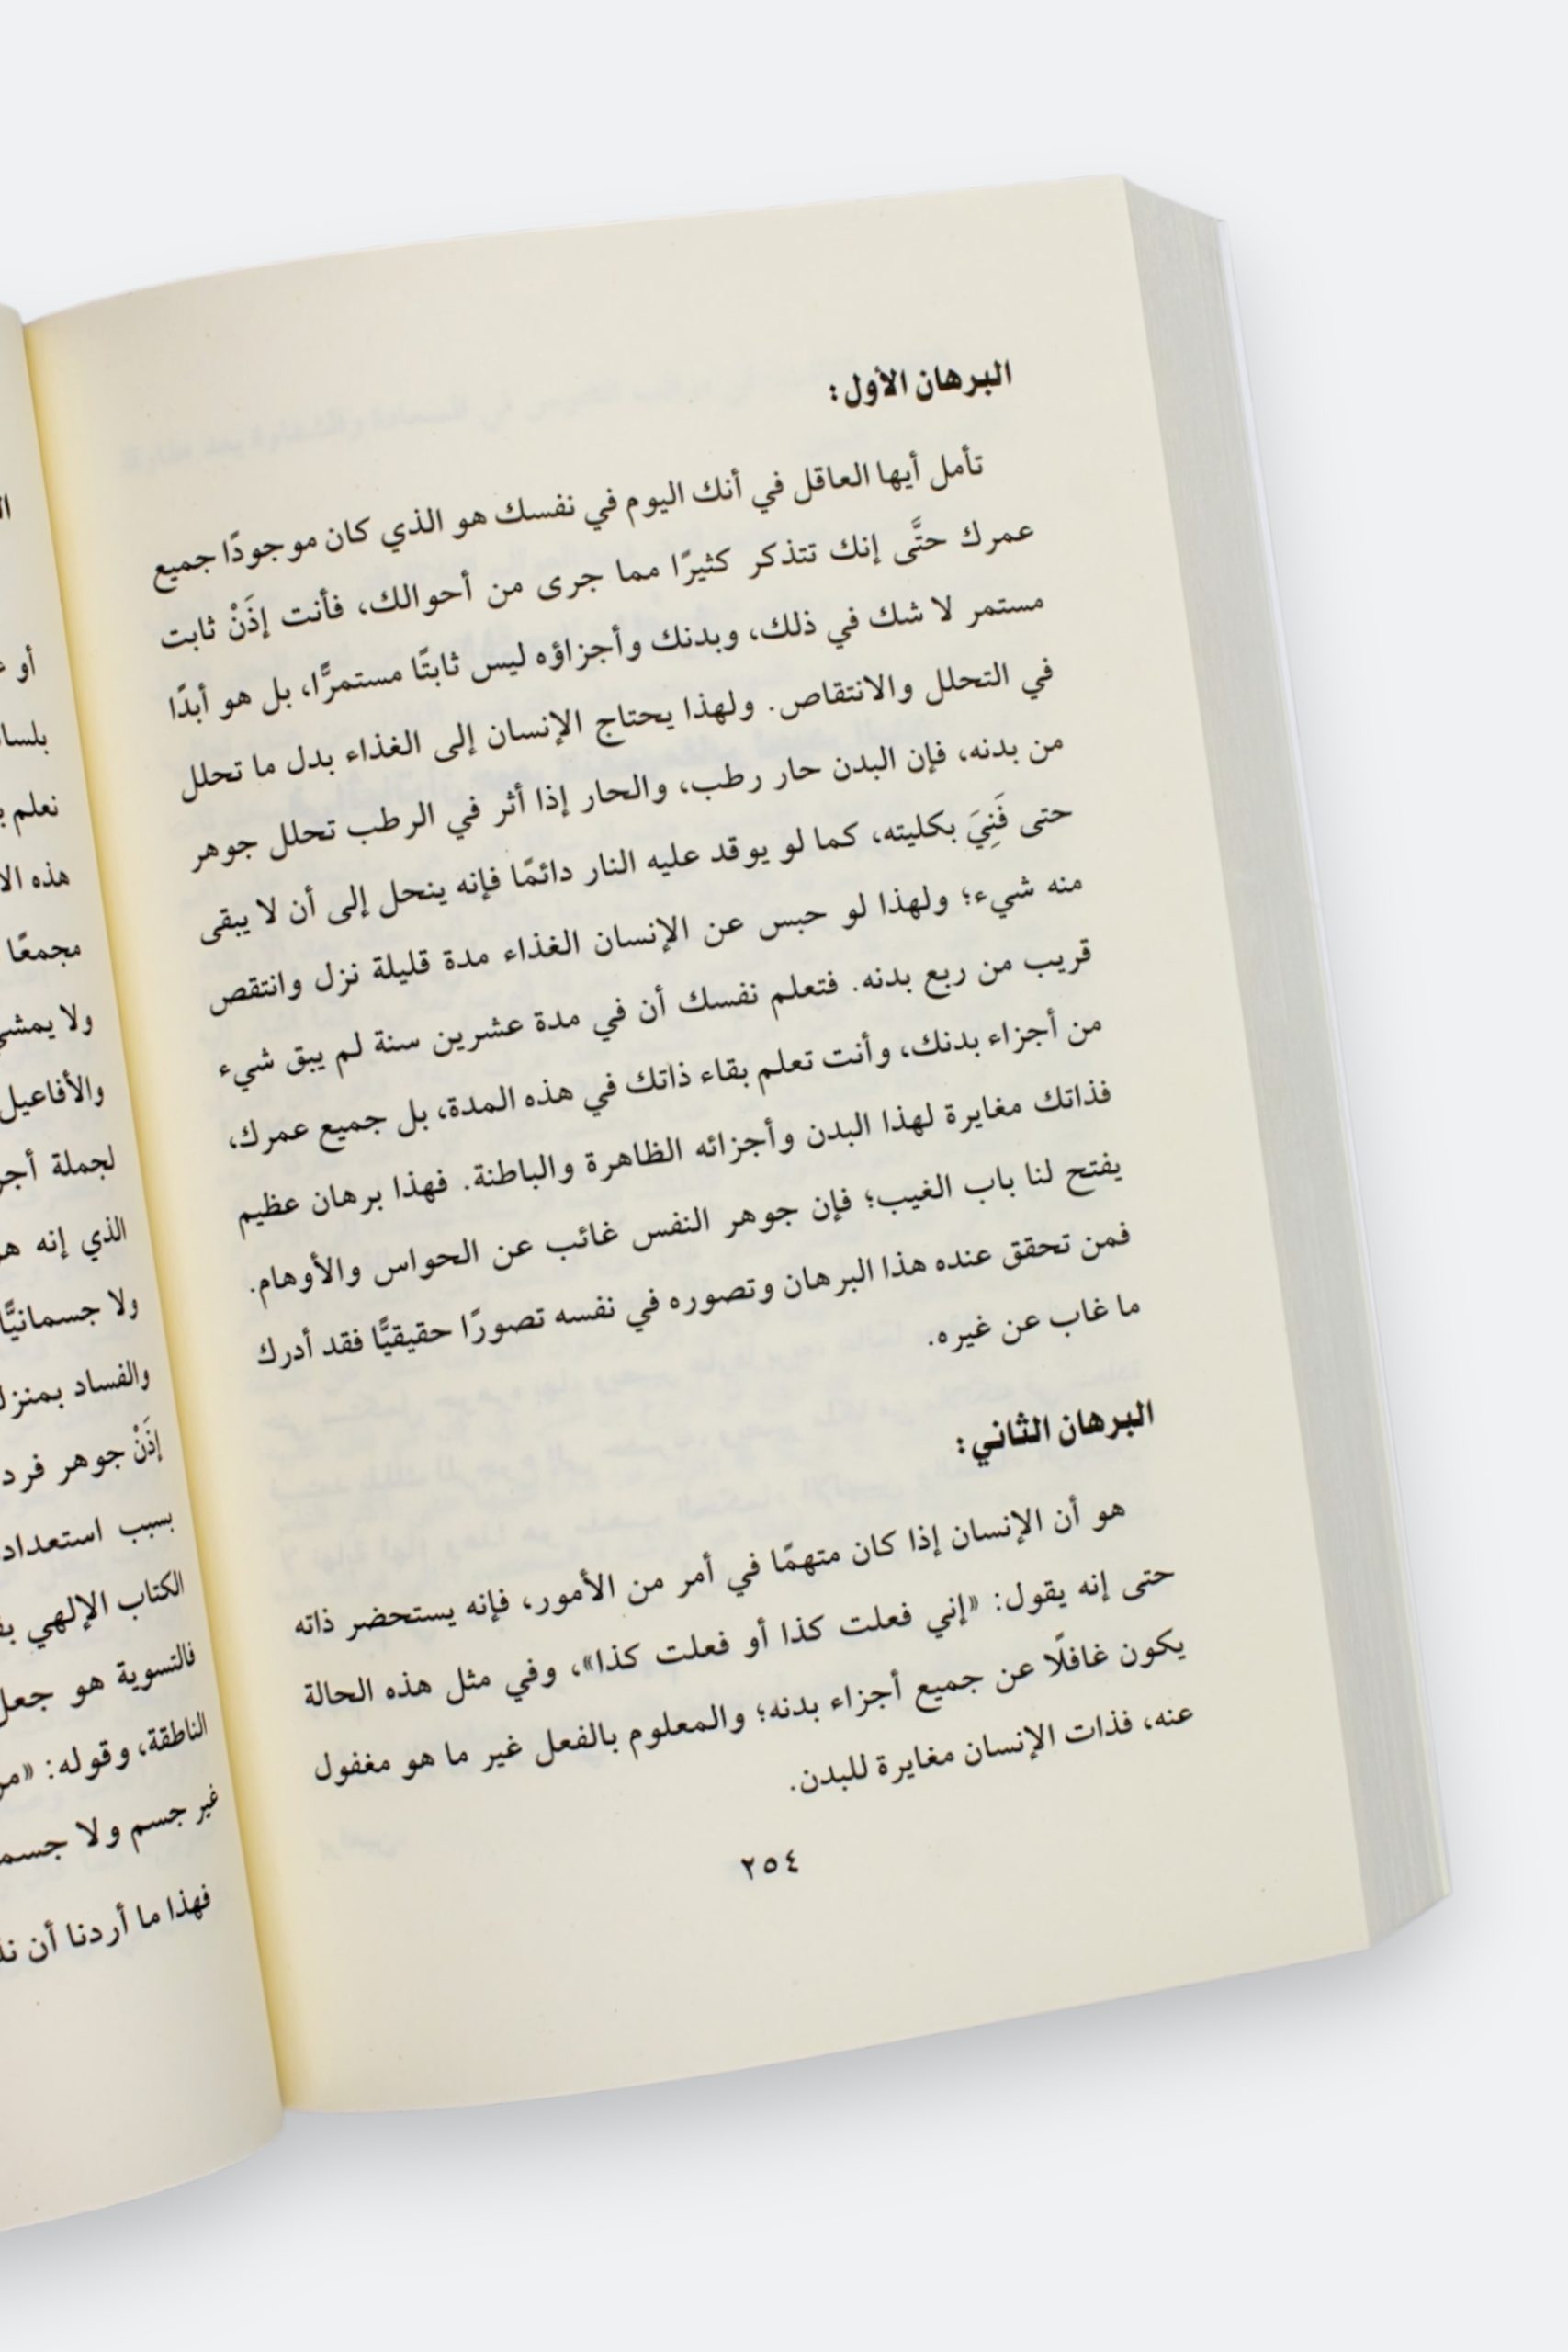 البرهان الأول:
تأمل أيها العاقل في أنك اليوم في نفسك هو الذي كان موجودًا جميع
عمرك حتَّى إنك تتذكر كثيرًا مما جرى من أحوالك، فأنت إذَنْ ثابت
مستمر لا شك في ذلك، وبدنك وأجزاؤه ليس ثابتًا مستمرًّا، بل هو أبدًا
في التحلل والانتقاص. ولهذا يحتاج الإنسان إلى الغذاء بدل ما تحلل
من بدنه، فإن البدن حار رطب، والحار إذا أثر في الرطب تحلل جوهر
حتى فَنِيَ بكليته، كما لو يوقد عليه النار دائمًا فإنه ينحل إلى أن لا يبقى
منه شيء؛ ولهذا لو حبس عن الإنسان الغذاء مدة قليلة نزل وانتقص
قريب من ربع بدنه. فتعلم نفسك أن في مدة عشرين سنة لم يبق شيء
من أجزاء بدنك، وأنت تعلم بقاء ذاتك في هذه المدة، بل جميع عمرك،
فذاتك مغايرة لهذا البدن وأجزائه الظاهرة والباطنة. فهذا برهان عظيم
يفتح لنا باب الغيب؛ فإن جوهر النفس غائب عن الحواس والأوهام.
فمن تحقق عنده هذا البرهان وتصوره في نفسه تصورًا حقيقيًّا فقد أدرك
ما غاب عن غيره.
البرهان الثاني:
هو أن الإنسان إذا كان متهمًا في أمر من الأمور، فإنه يستحضر ذاته
حتى إنه يقول: «إني فعلت كذا أو فعلت كذا»، وفي مثل هذه الحالة
يكون غافلًا عن جميع أجزاء بدنه؛ والمعلوم بالفعل غير ما هو مغفول
عنه، فذات الإنسان مغايرة للبدن.
٢٥٤
أو
نعلم
هذه
مجمعًا
ولا يمشي
والأفاعيل
لجملة
الذي إنه
ولا جسمانيًّا
والفساد
إذَنْ جوهر فرد
بسبب استعداد
الكتاب الإلهي
فالتسوية هو جعل
الناطقة، وقوله:
غير جسم ولا
فهذا ما أردنا أن